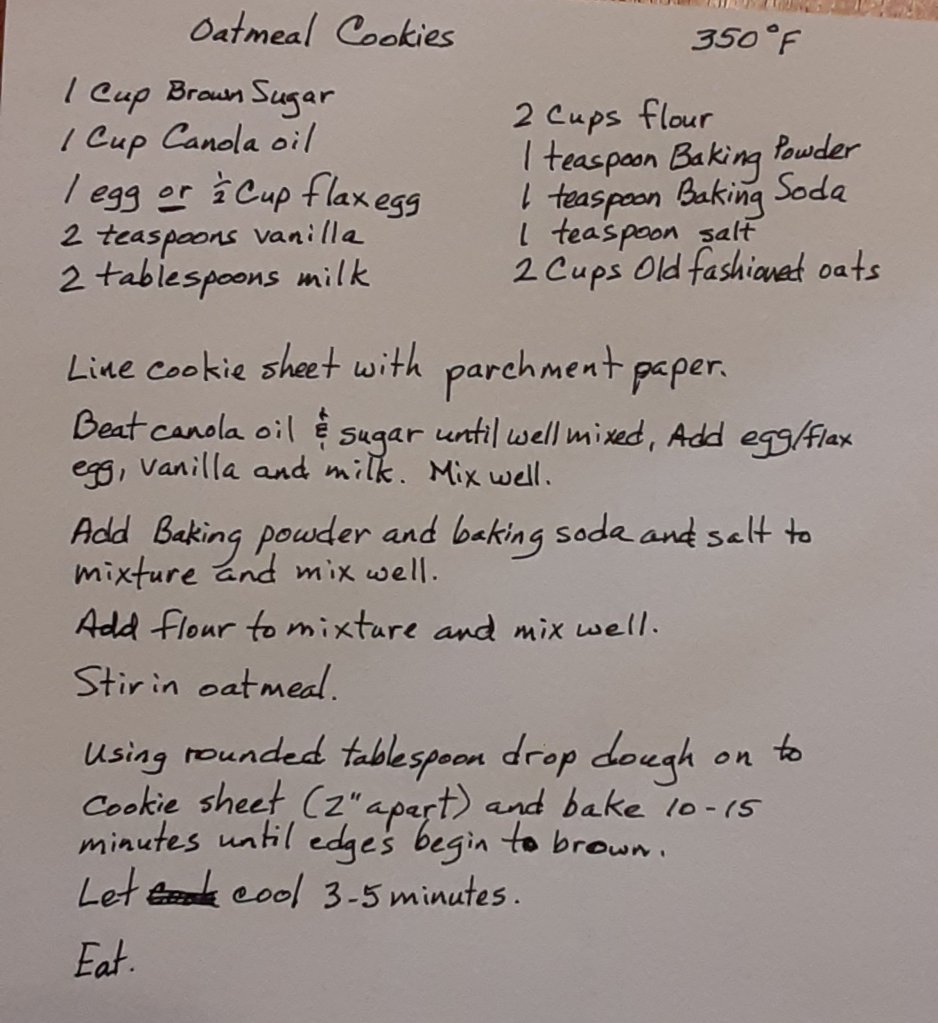 Oatmeal Cookies 350°F
1 Cup Brown Sugar
1 Cup Canola oil
1 egg or ½ Cup flax egg
2 teaspoons vanilla
2 tablespoons milk
2 Cups flour
1 teaspoon Baking Powder
1 teaspoon Baking Soda
1 teaspoon salt
2 Cups Old fashioned oats
Line cookie sheet with parchment paper.
Beat canola oil & sugar until well mixed, Add egg/flax
egg, vanilla and milk. Mix well.
Add Baking powder and baking soda and salt to
mixture and mix well.
Add flour to mixture and mix well.
Stir in oatmeal.
Using rounded tablespoon drop dough on to
Cookie sheet (2" apart) and bake 10-15
minutes until edges begin to brown.
Let cool 3-5 minutes.
Eat.